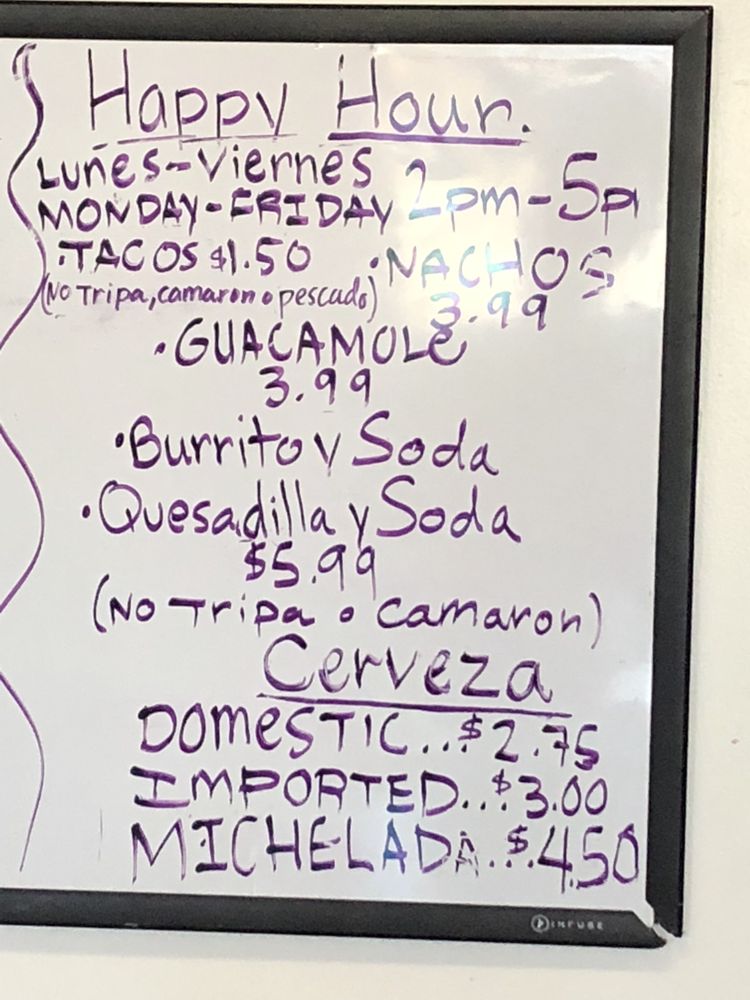 Happy Hour.
Lunes-Viernes
MONDAY-FRIDAY 2pm-5p
·TACOS $1.50 ·NACHOS
(No Tripa, camaron o pescado) 3.99
·GUACAMOLe
3.99
·Burrito y Soda
·Quesadilla y Soda
$5.99
(No Tripa o camaron)
Cerveza
DOMESTIC..$2.75
IMPORTED..$3.00
MICHELADA..$4.50
INFUSE